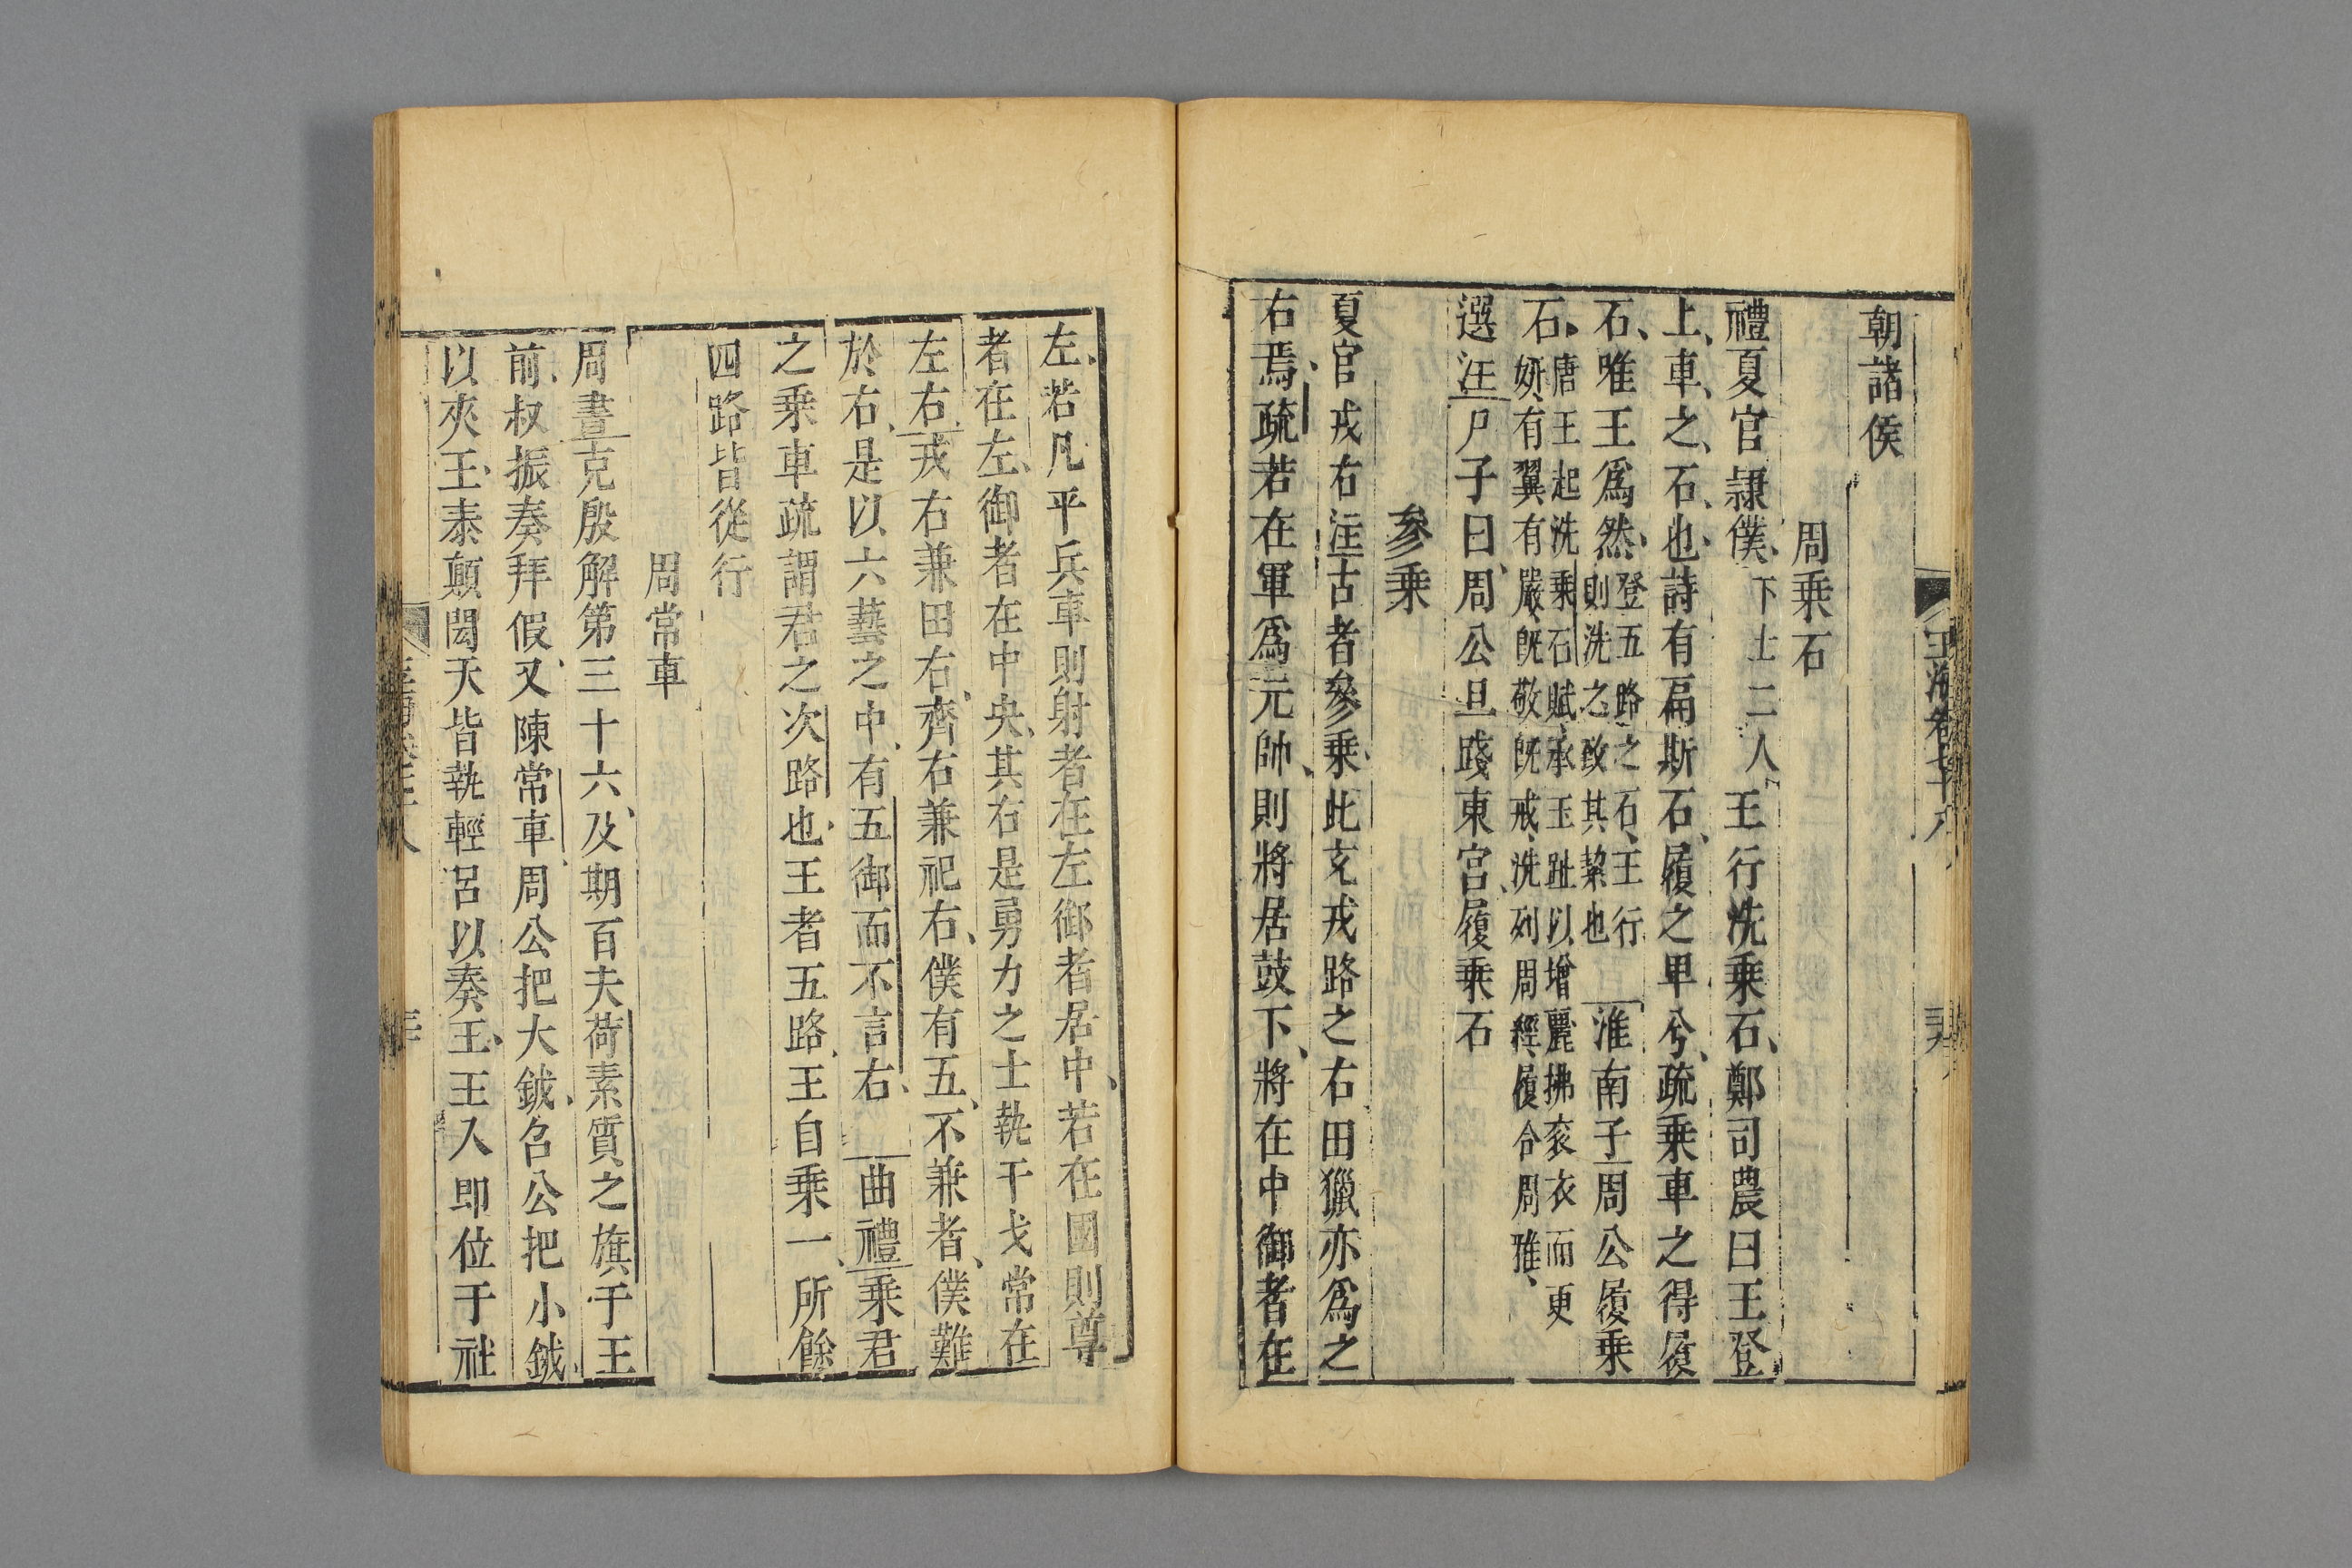 朝諸侯
周乗石
禮夏官隷僕下士二人王行洗乗石鄭司農曰王登
上車之石也詩有扁斯石履之卑兮疏乗車之得履
石唯王爲然登五路之石王行
則洗之致其潔也淮南子周公履乗
石唐王起洗乗石賦承玉趾以增麗拂衮衣而更
妍有翼有嚴既敬既戒洗列周經履合周雅
選注尸子曰周公旦踐東宫履乗石
參乗
夏官戎右注古者參乗此充戎路之右田獵亦爲之
右焉疏若在軍爲元帥則將居鼓下將在中御者在
左若凡平兵車則射者在左御者居中若在國則尊
者在左御者在中央其右是勇力之士執干戈常在
左右戎右兼田右齊右兼祀右僕有五不兼者僕難
於右是以六藝之中有五御而不言右 曲禮乗君
之乗車疏謂君之次路也王者五路王自乗一所餘
四路皆從行
周常車
周書克殷解第三十六及期百夫荷素質之旗于王
前叔振奏拜假又陳常車周公把大鉞召公把小鉞
以夾王泰顛閎天皆執輕呂以奏王王入即位于社